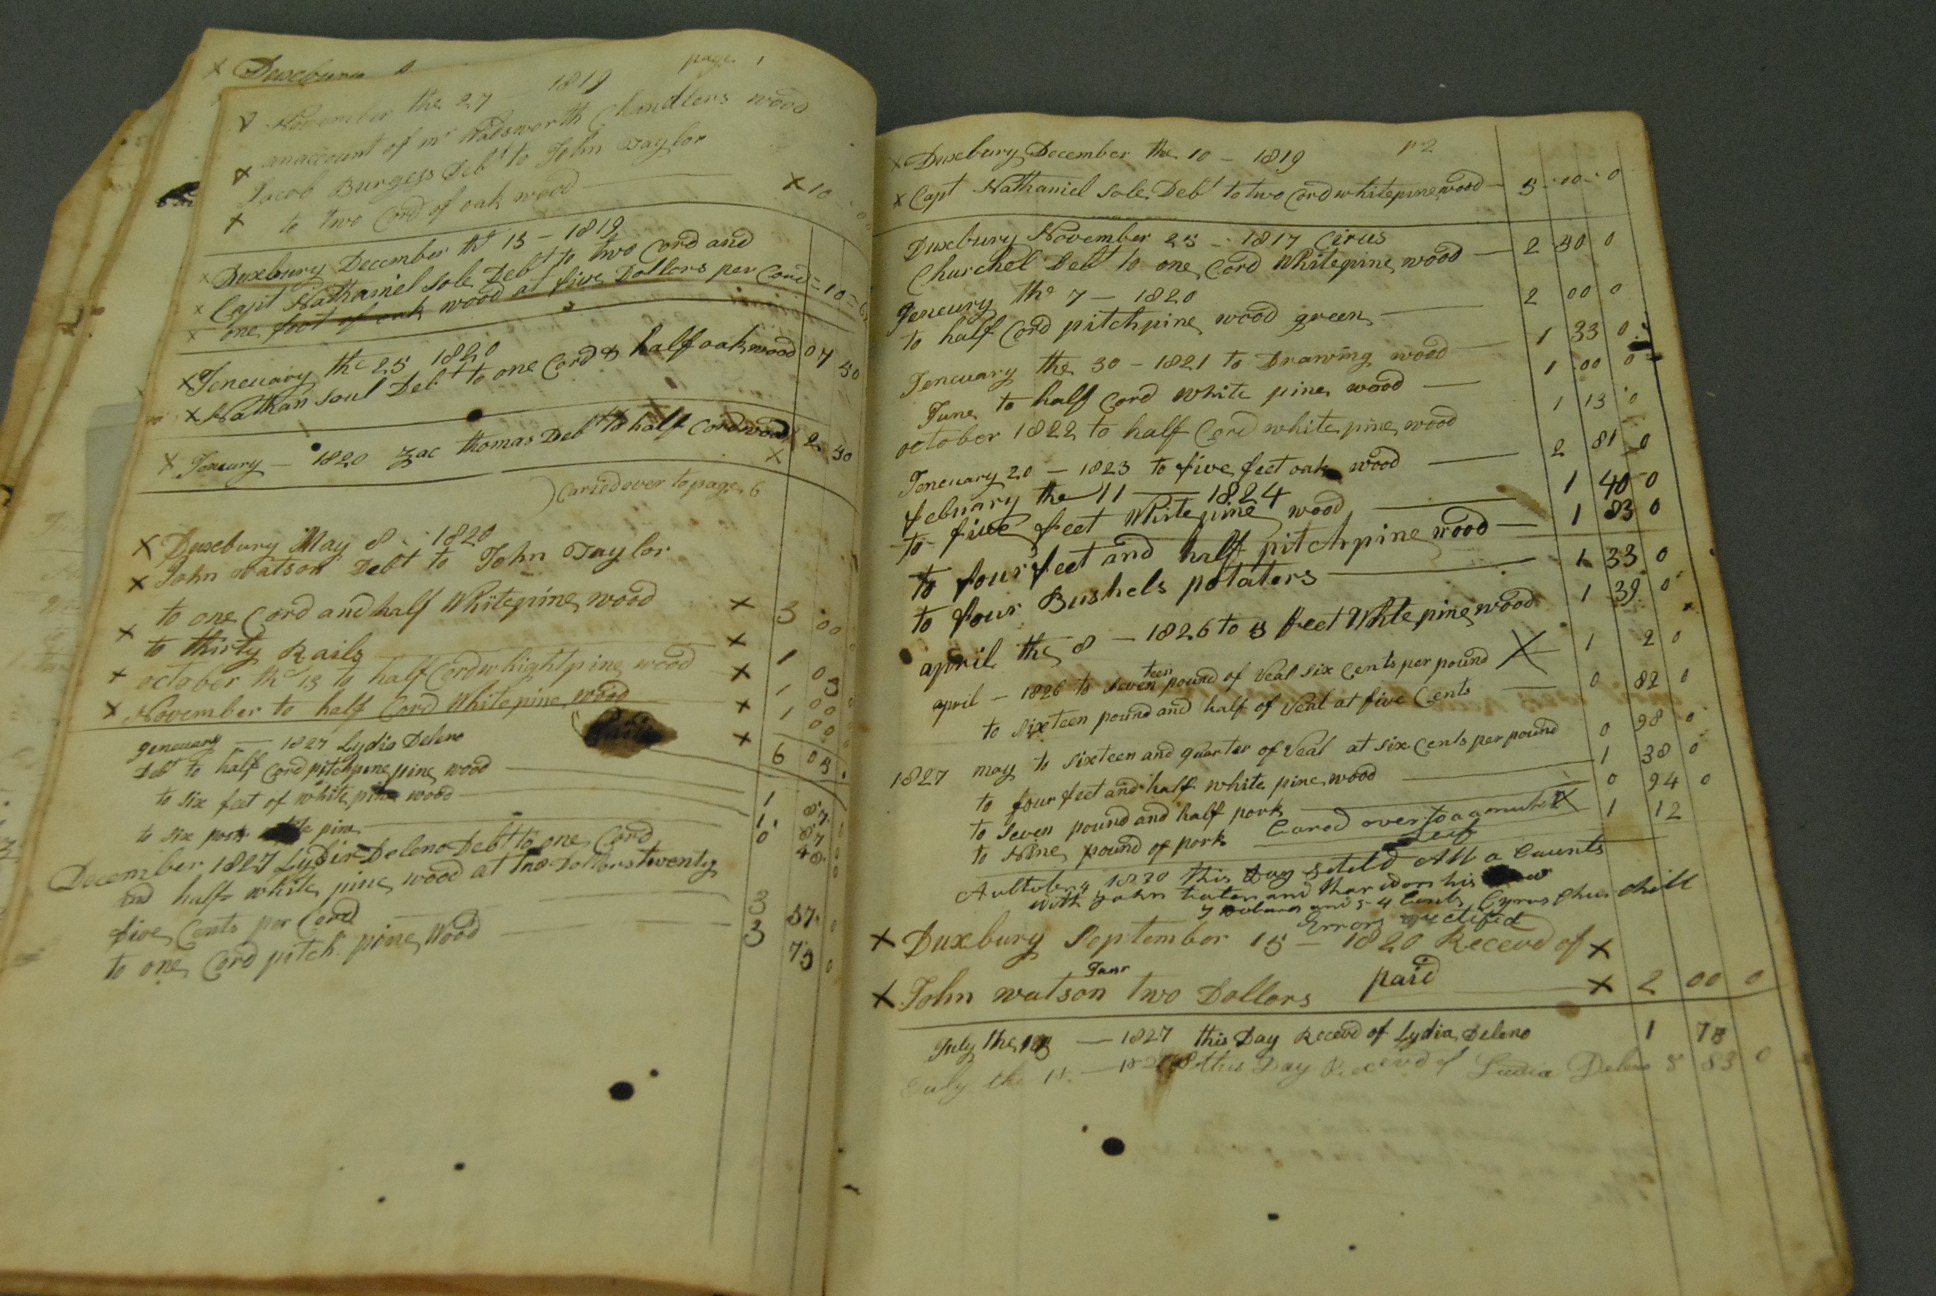 x Duxbury
page 1
November the 27 1819
x an account of mr Wadsworth Chandlers wood
x Jacob Burgess Debt to John Taylor
x to two Cord of oak wood x 10
x Duxbury December the 13 - 1819
x Capt Nathaniel Sole Debt to two Cord and
x one foot of oak wood at five Dollors per Cord = 10 =
x Jeneuary the 25 1820
x Nathan Soul Debt to one Cord & half oak wood 07 50
x Jenuary - 1820 Zac thomas Debt to half Cord wood x 2 50
Caried over to page 6
x Duxbury May 8 - 1820
x John watson Debt to John Taylor
to one Cord and half Whitepine wood x 3 00
x to thirty Rails x 1 0
x october the 13 to half Cord whight pine wood x 1 00
x November to half Cord Whitepine wood x 1 00
x 6 03
Jeneuary - 1827 Lydia Deleno
Debt to half Cord pitchpine pine wood 1 87
to six feet of white pine wood 1 87
to six posts pine 0 48
December 1827 Lydia Deleno Debt to one Cord
and half white pine wood at two Dollors twenty
five Cents per Cord 3 37 0
to one Cord pitch pine Wood 3 75 0
x Duxbury December the 10 - 1819 p 2
x Capt Nathaniel Sole Debt to two Cord whitepine wood 5 00 0
Duxbury November 25 - 1817 Cirus
Churchel Debt to one Cord Whitepine wood 2 50 0
Jeneury the 7 - 1820
to half Cord pitchpine wood green 2 00 0
Jeneuary the 30 - 1821 to Drawing wood 1 33 0
June to half Cord White pine wood 1 00 0
october 1822 to half Cord white pine wood 1 13 0
Jeneuary 20 - 1823 to five feet oak wood 2 81 0
febuary the 11 - 1824
to five feet Whitepine wood 1 40 0
to four feet and half pitchpine wood 1 83 0
to four Bushels potaters 1 33 0
april the 8 - 1826 to 5 feet White pine wood 1 39 0
april - 1826 to seventeen pound of Veal six Cents per pound X 1 2 0
to sixteen pound and half of Veal at five Cents 0 82 0
1827 may to sixteen and quarter of Veal at six Cents per pound 0 98 0
to four feet and half white pine wood 1 38 0
to seven pound and half pork 0 94 0
to Nine pound of pork 1 12
Cared over to a nuther X
Leaf
1830 this Day Seteld All a Caunts
with John and thar is on his
7 Dolars and 5-4 Cents Cyrus Chur chill
Errors
x Duxbury September 15 - 1820 Receved of x
x John watson Junr two Dollors paid x 2 00 0
July the - 1827 this Day Receved of Lydia Deleno 1 78
July the 18 - 1828 this Day Receved of Lidia Deleno 5 83 0